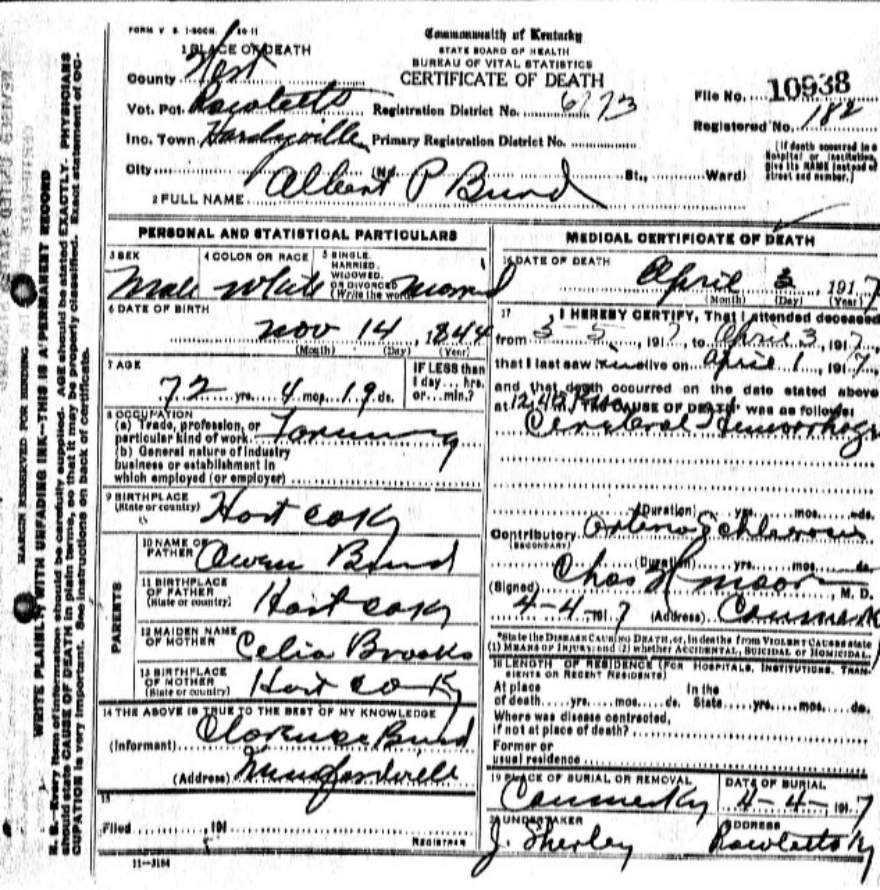 FORM V. S. 1-500M.
Commonwealth of Kentucky
STATE BOARD OF HEALTH
BUREAU OF VITAL STATISTICS
CERTIFICATE OF DEATH
1 PLACE OF DEATH
County Hart
Vot. Pct. Rowletts Registration District No. 6773
Inc. Town Hardyville Primary Registration District No.
City (No. St., Ward)
File No. 10938
Registered No. 182
(If death occurred in a Hospital or institution, give its NAME instead of street and number.)
2 FULL NAME Albert P Bund
PERSONAL AND STATISTICAL PARTICULARS
3 SEX Male
4 COLOR OR RACE White
5 SINGLE, MARRIED, WIDOWED, OR DIVORCED (Write the word)
6 DATE OF BIRTH
Nov 14, 1844
(Month) (Day) (Year)
7 AGE
72 yrs. 4 mos. 19 ds.
IF LESS than 1 day... hrs. or... min.?
8 OCCUPATION
(a) Trade, profession, or particular kind of work Farming
(b) General nature of industry
business or establishment in
which employed (or employer)
9 BIRTHPLACE
(State or country) Hart co Ky
PARENTS
10 NAME OF FATHER Owen Bund
11 BIRTHPLACE OF FATHER (State or country) Hart co Ky
12 MAIDEN NAME OF MOTHER Celia Brooks
13 BIRTHPLACE OF MOTHER (State or country) Hart co Ky
14 THE ABOVE IS TRUE TO THE BEST OF MY KNOWLEDGE
(Informant) Clarence Bund
(Address) Munfordville
15
Filed , 191
REGISTRAR
11—3184
MEDICAL CERTIFICATE OF DEATH
16 DATE OF DEATH
April 3, 1917
(Month) (Day) (Year)
17 I HEREBY CERTIFY, That I attended deceased
from 3-5, 1917, to April 3, 1917,
that I last saw him alive on April 1, 1917,
and that death occurred on the date stated above
at 12,40 P.m. The CAUSE OF DEATH was as follows:
Cerebral Hemorrhage
(Duration) yrs. mos. ds.
Contributory Arterio Schlerosis
(SECONDARY)
(Duration) yrs. mos. ds.
(Signed) Chas H Moore, M. D.
4-4-1917 (Address) Canmer K
*State the DISEASE CAUSING DEATH, or, in deaths from VIOLENT CAUSES state
(1) MEANS OF INJURY; and (2) whether ACCIDENTAL, SUICIDAL or HOMICIDAL.
18 LENGTH OF RESIDENCE (FOR HOSPITALS, INSTITUTIONS, TRANSIENTS OR RECENT RESIDENTS)
At place of death yrs. mos. ds. In the State yrs. mos. ds.
Where was disease contracted,
if not at place of death?
Former or
usual residence
19 PLACE OF BURIAL OR REMOVAL Canmer Ky
DATE OF BURIAL 4-4-1917
20 UNDERTAKER J. Sherley
ADDRESS Rowletts Ky
MARGIN RESERVED FOR BINDING
WRITE PLAINLY, WITH UNFADING INK—THIS IS A PERMANENT RECORD
N. B.—Every item of information should be carefully supplied. AGE should be stated EXACTLY. PHYSICIANS
should state CAUSE OF DEATH in plain terms, so that it may be properly classified. Exact statement of OC-
CUPATION is very important. See instructions on back of certificate.